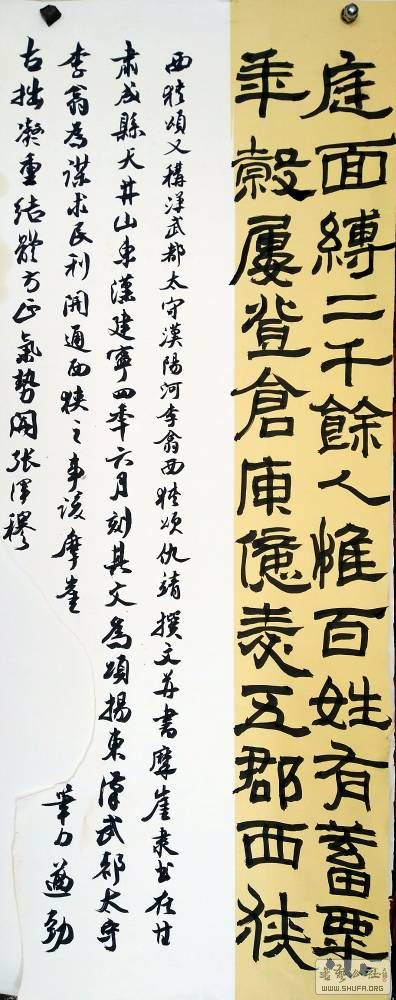 庭面縛二千餘人惟百姓有蓄粟
年穀屢登倉庫億表五郡西狹
西狹頌又稱漢武都太守漢陽河李翕西狹頌仇靖撰文并書摩崖隸書在甘
肅成縣天井山東漢建寧四年六月刻其文為頌揚東漢武都太守
李翕為謀求民利開通西狹之事該摩崖
筆力遒勁
古拙凝重結體方正氣勢開張渾穆
WWW.SHUFA.ORG